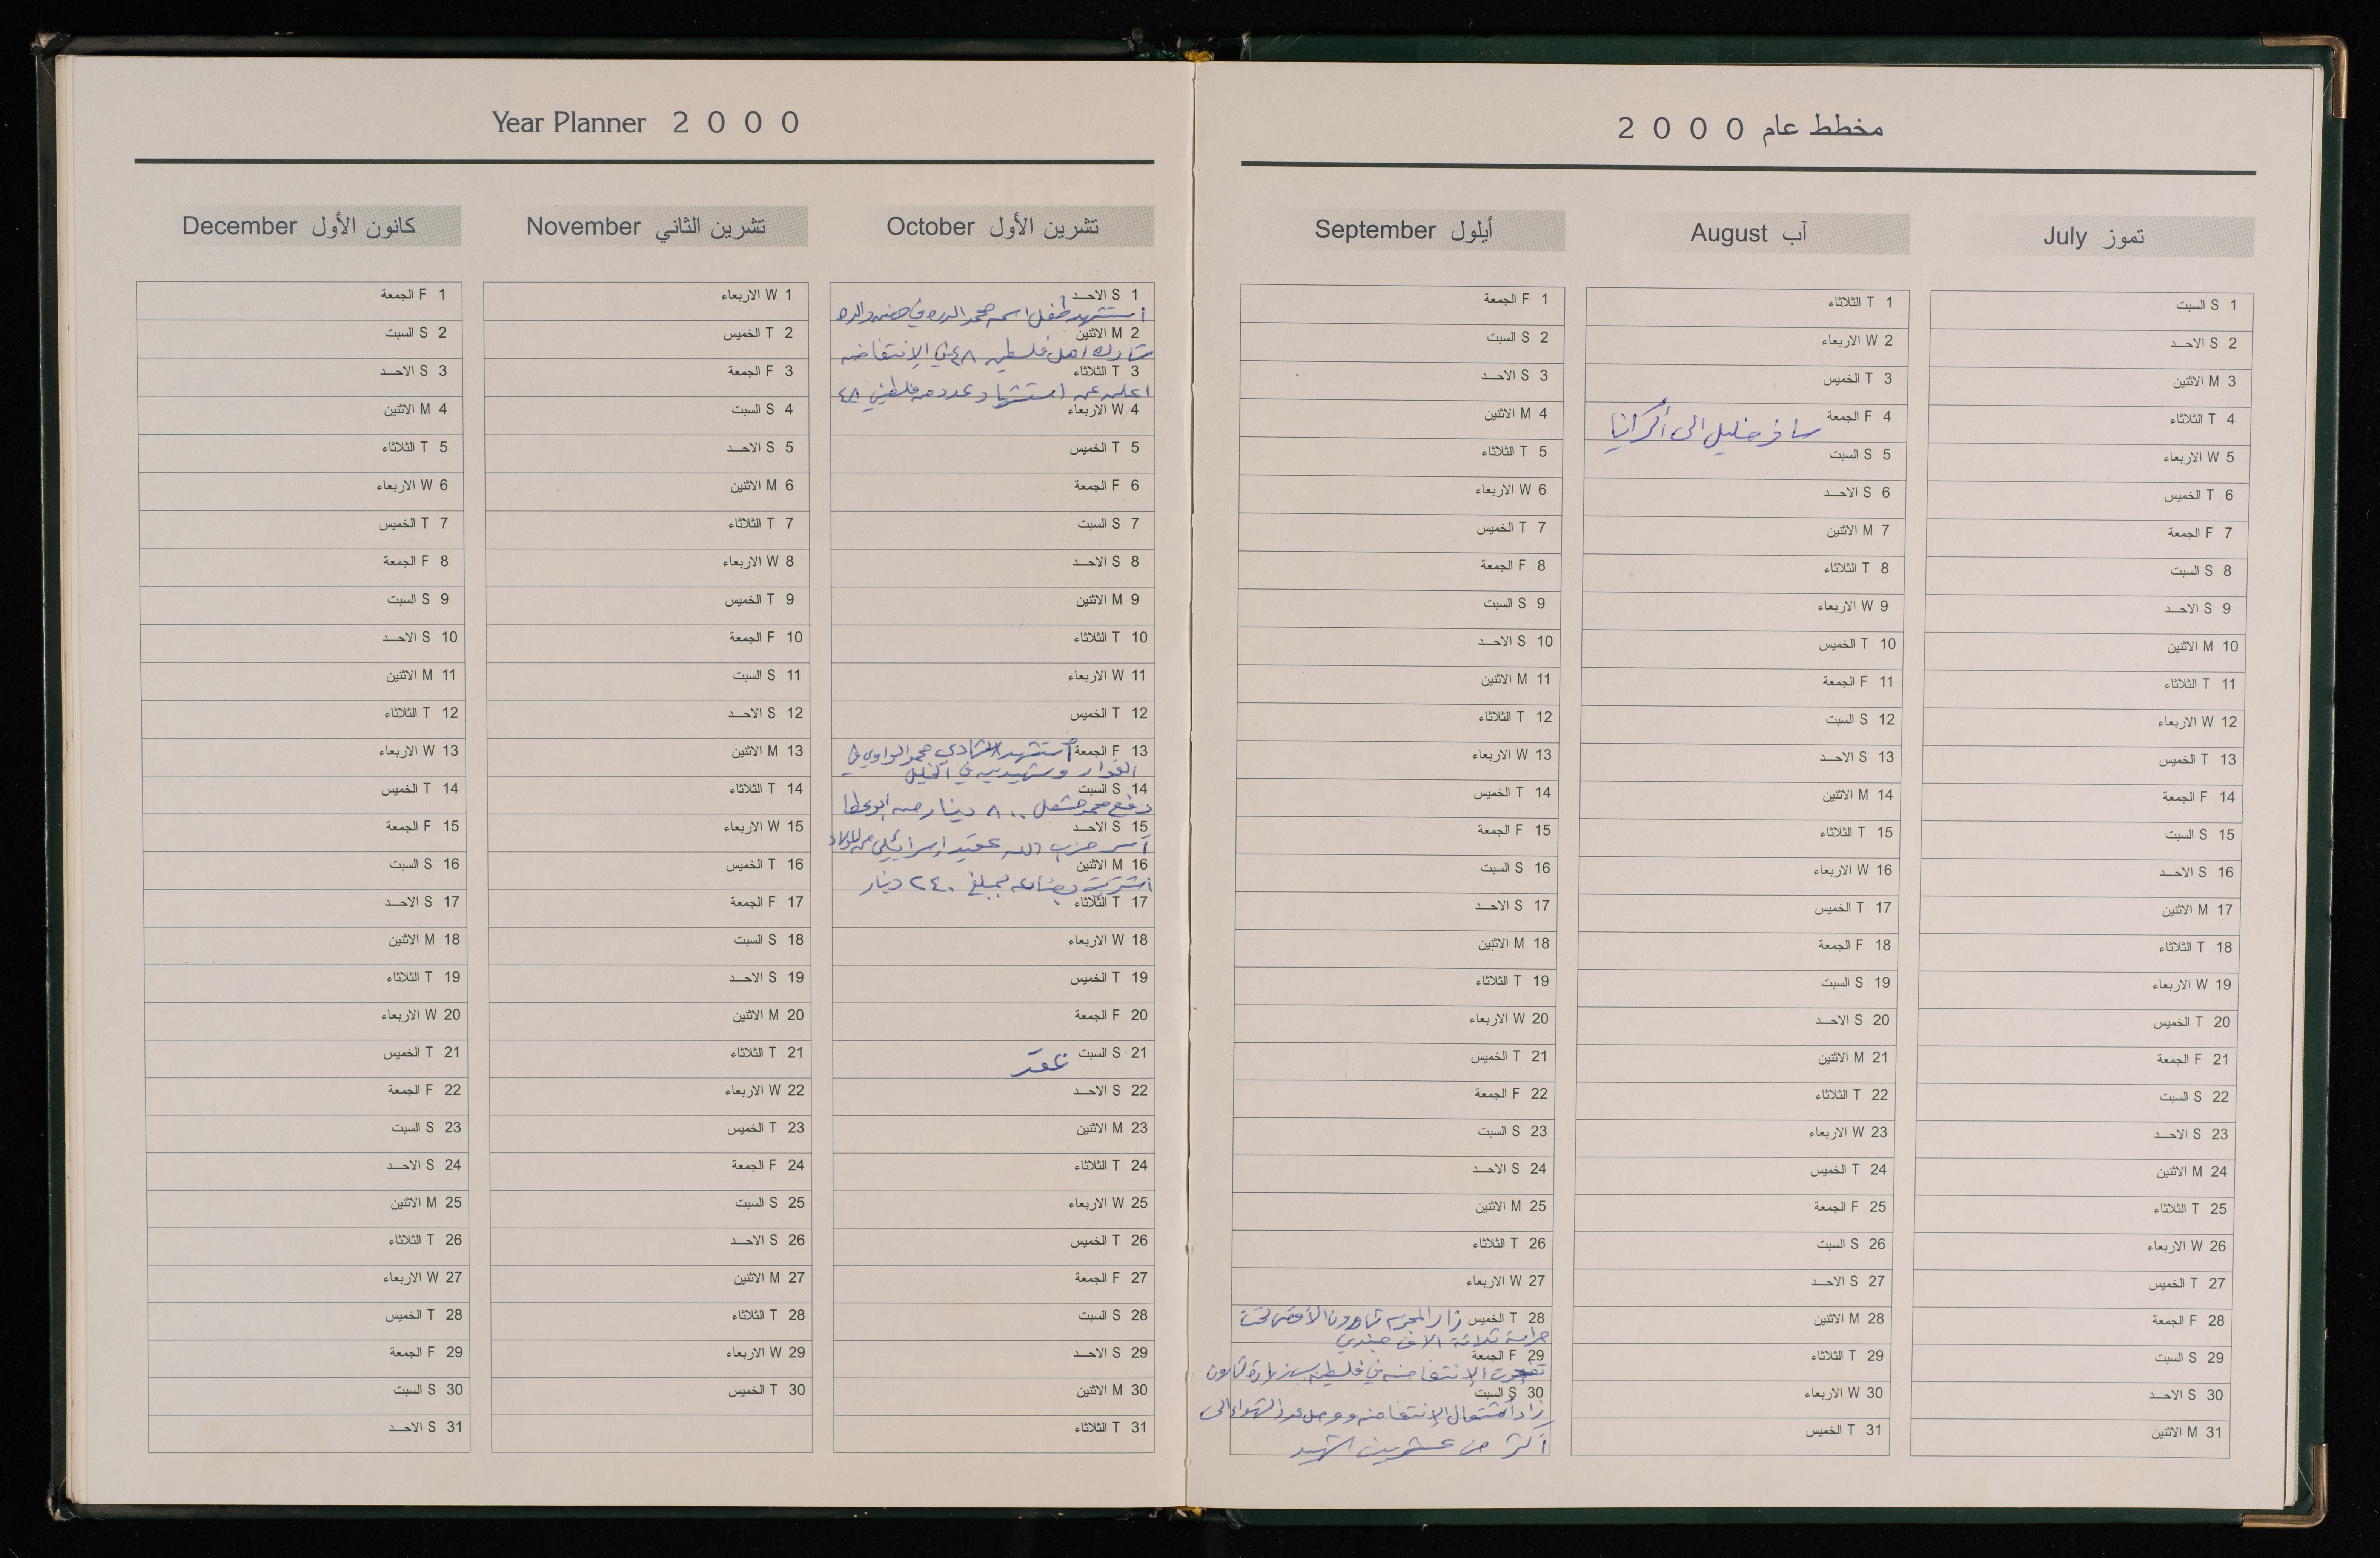 مخطط عام 2000
تموز July
1 S السبت
2 S الاحـــد
3 M الاثنين
4 T الثلاثاء
5 W الاربعاء
6 T الخميس
7 F الجمعة
8 S السبت
9 S الاحـــد
10 M الاثنين
11 T الثلاثاء
12 W الاربعاء
13 T الخميس
14 F الجمعة
15 S السبت
16 S الاحـــد
17 M الاثنين
18 T الثلاثاء
19 W الاربعاء
20 T الخميس
21 F الجمعة
22 S السبت
23 S الاحـــد
24 M الاثنين
25 T الثلاثاء
26 W الاربعاء
27 T الخميس
28 F الجمعة
29 S السبت
30 S الاحـــد
31 M الاثنين
آب August
1 T الثلاثاء
2 W الاربعاء
3 T الخميس
4 F الجمعة سافر خليل الى أكرانيا
5 S السبت
6 S الاحـــد
7 M الاثنين
8 T الثلاثاء
9 W الاربعاء
10 T الخميس
11 F الجمعة
12 S السبت
13 S الاحـــد
14 M الاثنين
15 T الثلاثاء
16 W الاربعاء
17 T الخميس
18 F الجمعة
19 S السبت
20 S الاحـــد
21 M الاثنين
22 T الثلاثاء
23 W الاربعاء
24 T الخميس
25 F الجمعة
26 S السبت
27 S الاحـــد
28 M الاثنين
29 T الثلاثاء
30 W الاربعاء
31 T الخميس
أيلول September
1 F الجمعة
2 S السبت
3 S الاحـــد
4 M الاثنين
5 T الثلاثاء
6 W الاربعاء
7 T الخميس
8 F الجمعة
9 S السبت
10 S الاحـــد
11 M الاثنين
12 T الثلاثاء
13 W الاربعاء
14 T الخميس
15 F الجمعة
16 S السبت
17 S الاحـــد
18 M الاثنين
19 T الثلاثاء
20 W الاربعاء
21 T الخميس
22 F الجمعة
23 S السبت
24 S الاحـــد
25 M الاثنين
26 T الثلاثاء
27 W الاربعاء
28 T الخميس زار المجرم شارون الأقصى تحت
حراسة ثلاثة الاف جندي
29 F الجمعة
الإنتفاضه في فلسطين زيارة شارون
30 S السبت
زاد أشتعال الإنتفاضه ووصل عدد الشهداء الى
أكثر من عشرين شهيد
Year Planner 2000
تشرين الأول October
1 S الاحـــد
أستشهد طفل اسمه محمد الدره في حضن والده
2 M الاثنين
شارك اهل فلسطين ٤٨ في الإنتفاضه
3 T الثلاثاء
اعلن عن استشهاد عدد من فلسطيني ٤٨
4 W الاربعاء
5 T الخميس
6 F الجمعة
7 S السبت
8 S الاحـــد
9 M الاثنين
10 T الثلاثاء
11 W الاربعاء
12 T الخميس
13 F الجمعة أستشهد شادي محمد الواوي في
الفوار وشهيدين في الخليل
14 S السبت
دفع محمد مشعل ٨٠٠ دينار من ابو عطا
15 S الاحـــد
أسر حزب الله عقيد إسرائيلي من
16 M الاثنين
اشتريت بضاعه بمبلغ ٢٤٠ دينار
17 T الثلاثاء
18 W الاربعاء
19 T الخميس
20 F الجمعة
21 S السبت عقد
22 S الاحـــد
23 M الاثنين
24 T الثلاثاء
25 W الاربعاء
26 T الخميس
27 F الجمعة
28 S السبت
29 S الاحـــد
30 M الاثنين
31 T الثلاثاء
تشرين الثاني November
1 W الاربعاء
2 T الخميس
3 F الجمعة
4 S السبت
5 S الاحـــد
6 M الاثنين
7 T الثلاثاء
8 W الاربعاء
9 T الخميس
10 F الجمعة
11 S السبت
12 S الاحـــد
13 M الاثنين
14 T الثلاثاء
15 W الاربعاء
16 T الخميس
17 F الجمعة
18 S السبت
19 S الاحـــد
20 M الاثنين
21 T الثلاثاء
22 W الاربعاء
23 T الخميس
24 F الجمعة
25 S السبت
26 S الاحـــد
27 M الاثنين
28 T الثلاثاء
29 W الاربعاء
30 T الخميس
كانون الأول December
1 F الجمعة
2 S السبت
3 S الاحـــد
4 M الاثنين
5 T الثلاثاء
6 W الاربعاء
7 T الخميس
8 F الجمعة
9 S السبت
10 S الاحـــد
11 M الاثنين
12 T الثلاثاء
13 W الاربعاء
14 T الخميس
15 F الجمعة
16 S السبت
17 S الاحـــد
18 M الاثنين
19 T الثلاثاء
20 W الاربعاء
21 T الخميس
22 F الجمعة
23 S السبت
24 S الاحـــد
25 M الاثنين
26 T الثلاثاء
27 W الاربعاء
28 T الخميس
29 F الجمعة
30 S السبت
31 S الاحـــد